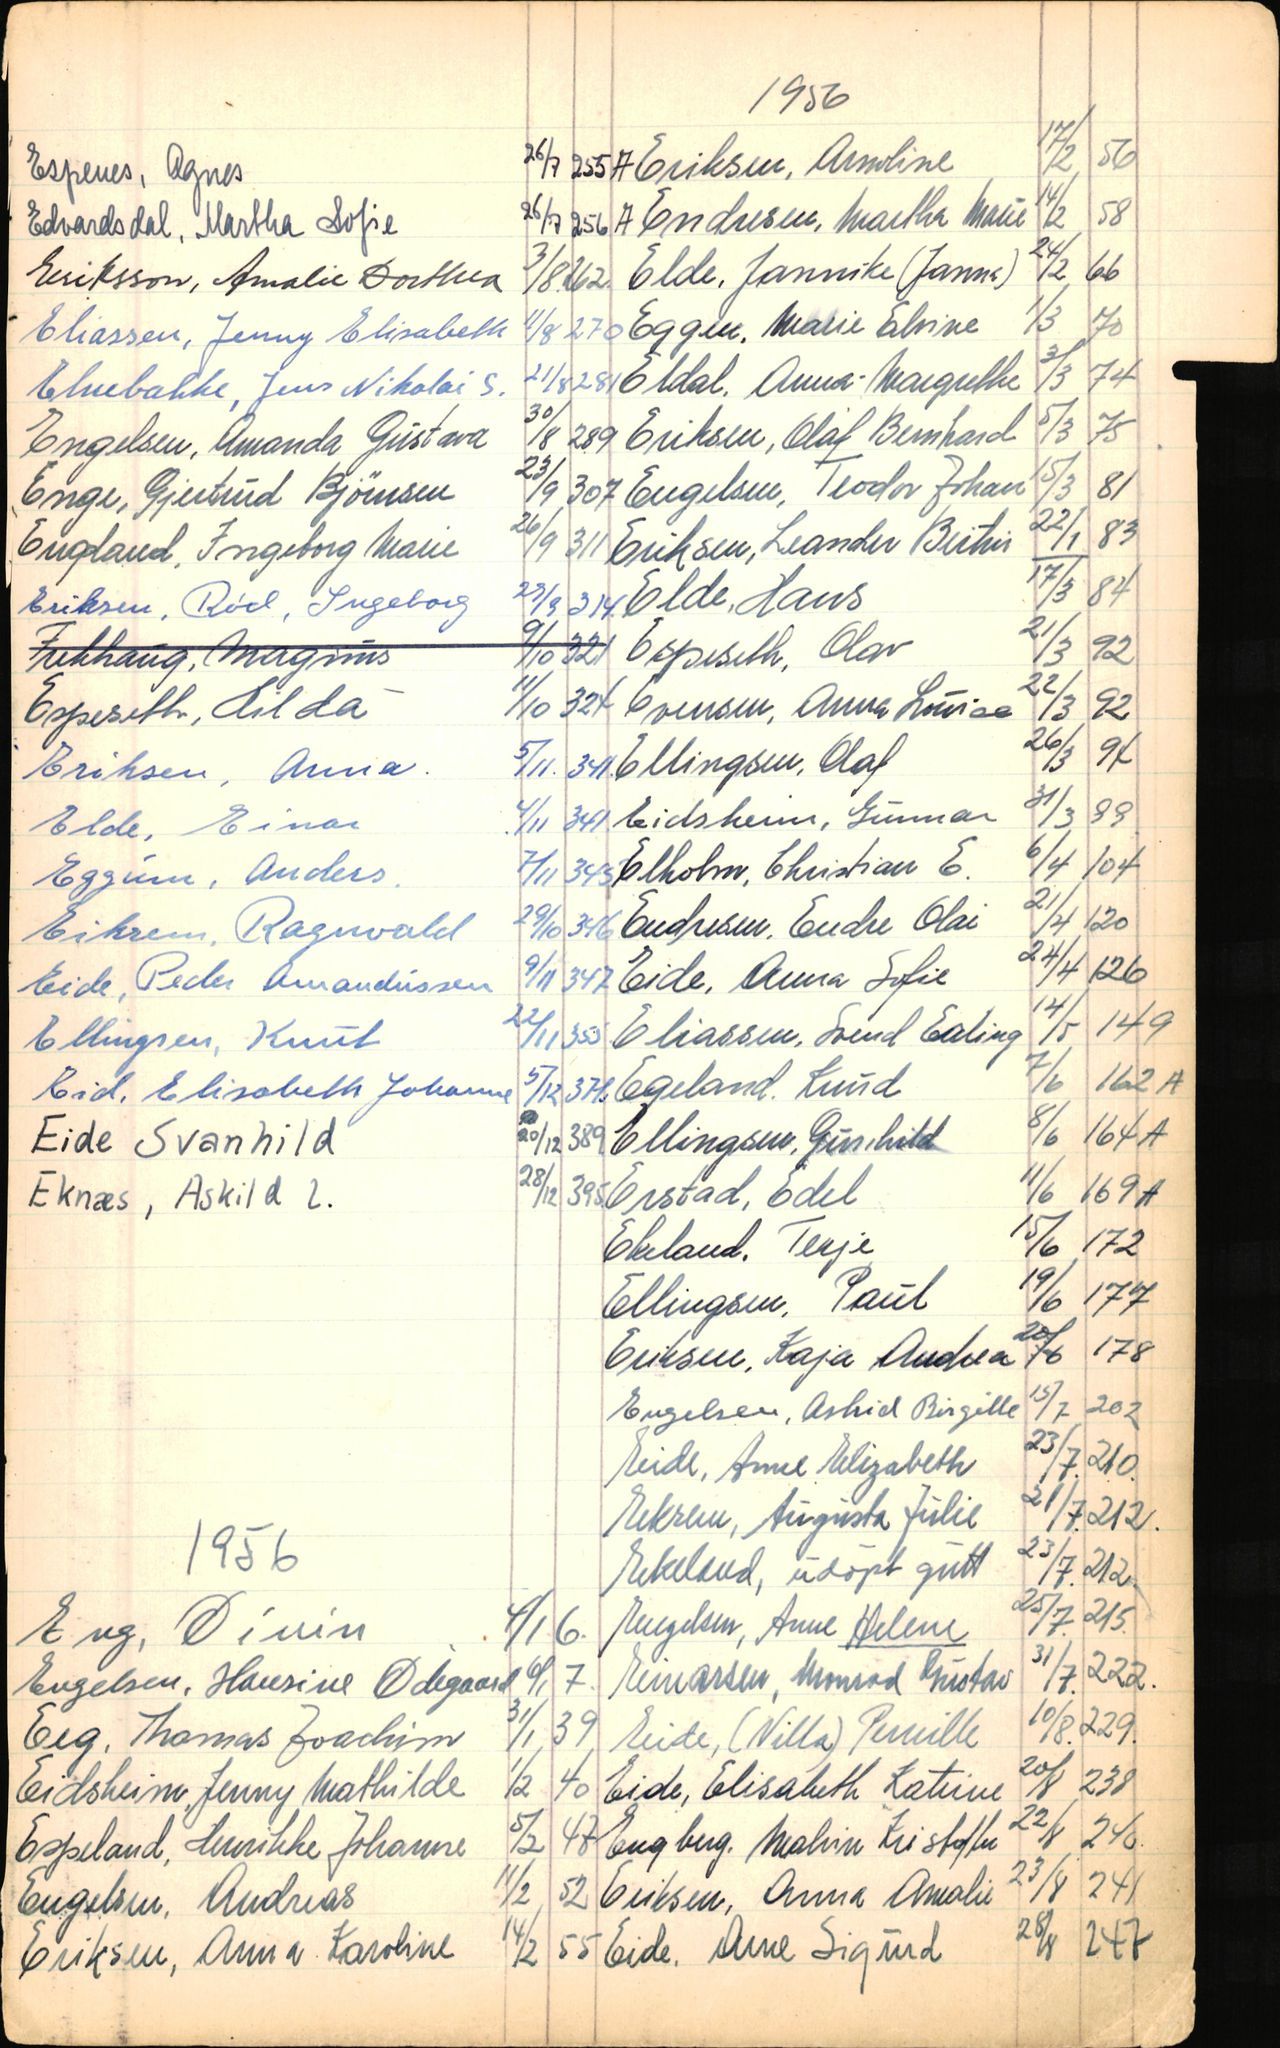 Espenes, Agnes 26/7 255 A
Edvardsdal, Martha Sofie 26/7 256 A
Eriksson, Amalie Dorthea 3/8 262
Eliassen, Jenny Elisabeth 11/8 270
Elnebakke, Jens Nikolai S. 21/8 281
Engelsen, Amanda Gustava 30/8 289
Enge, Gjertrud Björnsen 23/9 307
England, Ingeborg Marie 26/9 311
Eriksen, Röd, Ingeborg 314
Magnus 9/10 321
Espeseth, Hilda 11/10 324
Eriksen, Anna. 5/11. 341.
Elde, Einar 4/11 341
Eggum, Anders. 7/11 345
Eikrem, Ragnvald 29/10 346
Eide, Peder Amandussen 9/11 347
Ellingsen, Knut 22/11 355
Eid, Elisabeth Johanne 5/12 371.
Eide Svanhild 20/12 389
Eknæs, Askild L. 28/12 395
1956
Eng, 4/1 6.
Engelsen, Hansine Ödegaard 6/1 7.
Eeg, Thomas Joachim 31/1 39
Eidsheim, Jenny Mathilde 1/2 40
Espeland, Henrikke Johanne 5/2 47
Engelsen, Andreas 11/2 52
Eriksen, Anna Karoline 14/2 55
1956
Eriksen, Arnoline 17/2 56
Endresen, Martha Marie 14/2 58
Elde, Jannike (Janna) 24/2 66
Eggen, Marie Elvine 1/3 70
Eldal, Anna-Margrethe 3/3 74
Eriksen, Olaf Bernhard 5/3 75
Engelsen, Teodor Johan 15/3 81
Eriksen, Leander Bertin 22/1 83
Elde, Hans 17/3 84
Espeseth, Olav 21/3 92
Evensen, Anna Lovise 22/3 92
Ellingsen, Olaf 26/3 94
Eidsheim, Gunnar 31/3 99
Elholm, Christian E. 6/4 104
Endresen, Endre Olai 21/4 120
Eide, Anna Sofie 24/4 126
Eliassen, Svend Erling 14/5 149
Egeland, Knud 7/6 162 A
Ellingsen, Gunhild 8/6 164 A
Erstad, Edel 11/6 169 A
Ekeland, Terje 15/6 172
Ellingsen, Paul 19/6 177
Eriksen, Kaja Andrea 20/6 178
Engelsen, Astrid Birgitte 15/7 202
Eide, Anne Elizabeth 23/7. 210.
Eikrem, Augusta Julie 21/7. 212.
Eikeland, udöpt gutt 23/7. 212.
Engelsen, Anne Helene 25/7. 215.
Einarsen, Monrad Gustav 31/7. 222.
Eide, (Villa) Pernille 10/8. 229.
Eide, Elisabeth Katrine 20/8 238
Engberg, Malvin Kristoffer 22/8 240.
Eriksen, Anna Amalie 23/8 241
Eide, Arne Sigurd 28/8 247